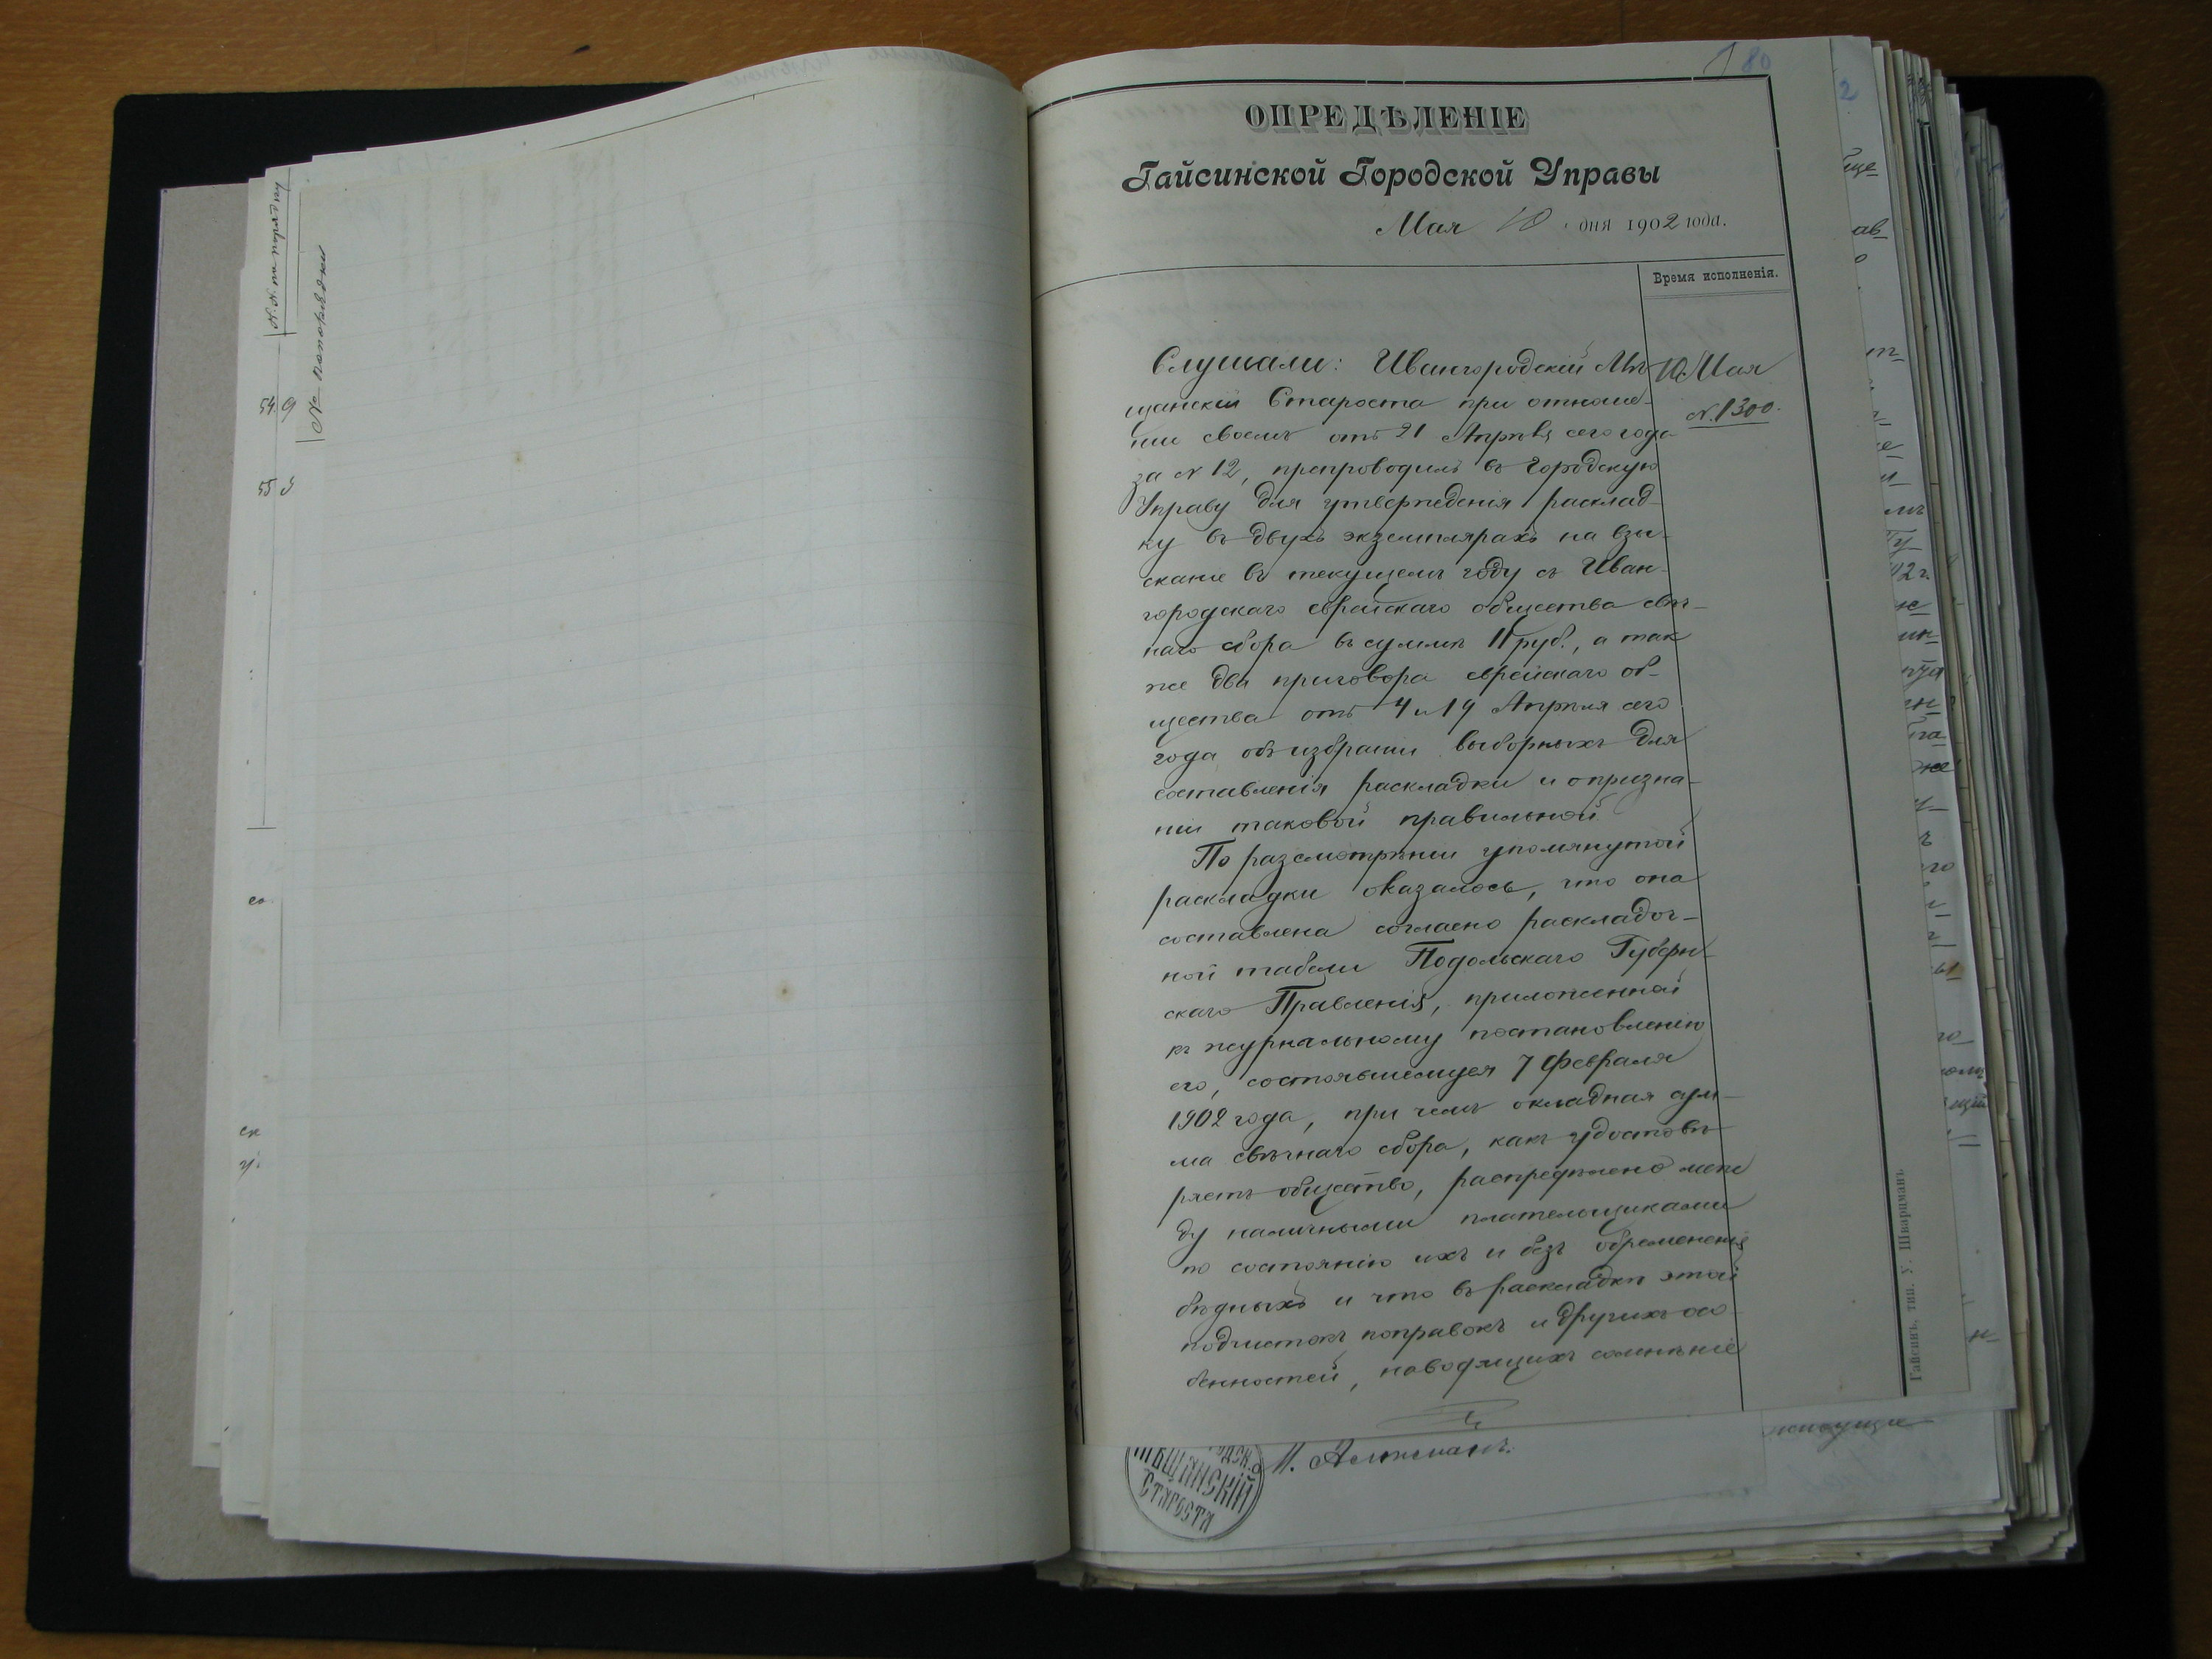 № попорядку
№№ по порядку
54 9
55
80
2
ОПРЕДѢЛЕНІЕ
Гайсинской Городской Управы
Мая 10 дня 1902 года.
Время исполненія.
10 Мая
№ 1300.
Слушали: Ивангородскій Мѣ-
щанскій Староста при отноше-
ніи своемъ отъ 21 Апрѣля сего года
за № 12, препроводилъ въ Городскую
Управу для утвержденія расклад-
ку въ двухъ экземплярахъ на взы-
сканіе въ текущемъ году съ Иван-
городскаго еврейскаго общества свѣч-
наго сбора въ суммѣ 11 руб., а так
же два приговора еврейскаго об-
щества отъ 4 и 19 Апрѣля сего
года объ избраніи выборныхъ для
составленія раскладки и о призна-
ніи таковой правильной.
По разсмотрѣніи упомянутой
раскладки оказалось, что она
составлена согласно расклудоч-
ной табели Подольскаго Губерн-
скаго Правленія, приложенной
къ журнальному постановленію
его, состоявшемуся 7 Февраля
1902 года, при чемъ окладная сум-
ма свѣчнаго сбора, какъ удостовѣ-
ряетъ общество, распредѣлена меж
ду наличными плательщиками
по состоянію ихъ и безъ обремененія
бѣдныхъ и что въ раскладкѣ этой
подчистокъ, поправокъ и другихъ осо-
бенностей, наводящихъ сомнѣніе
Гайсинъ, тип. У. Шварцманъ
МѢЩАНСКІЙ
СТАРОСТА